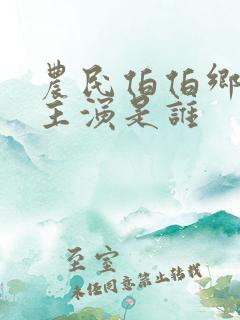 農民伯伯鄉
主演是誰
至室
未经同意禁止转载